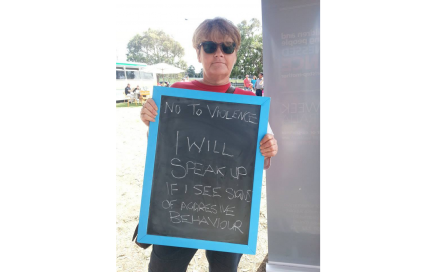 NO TO VIOLENCE
I WILL
SPEAK UP
IF I SEE SIGNS
OF AGGRESIVE
BEHAVIOUR